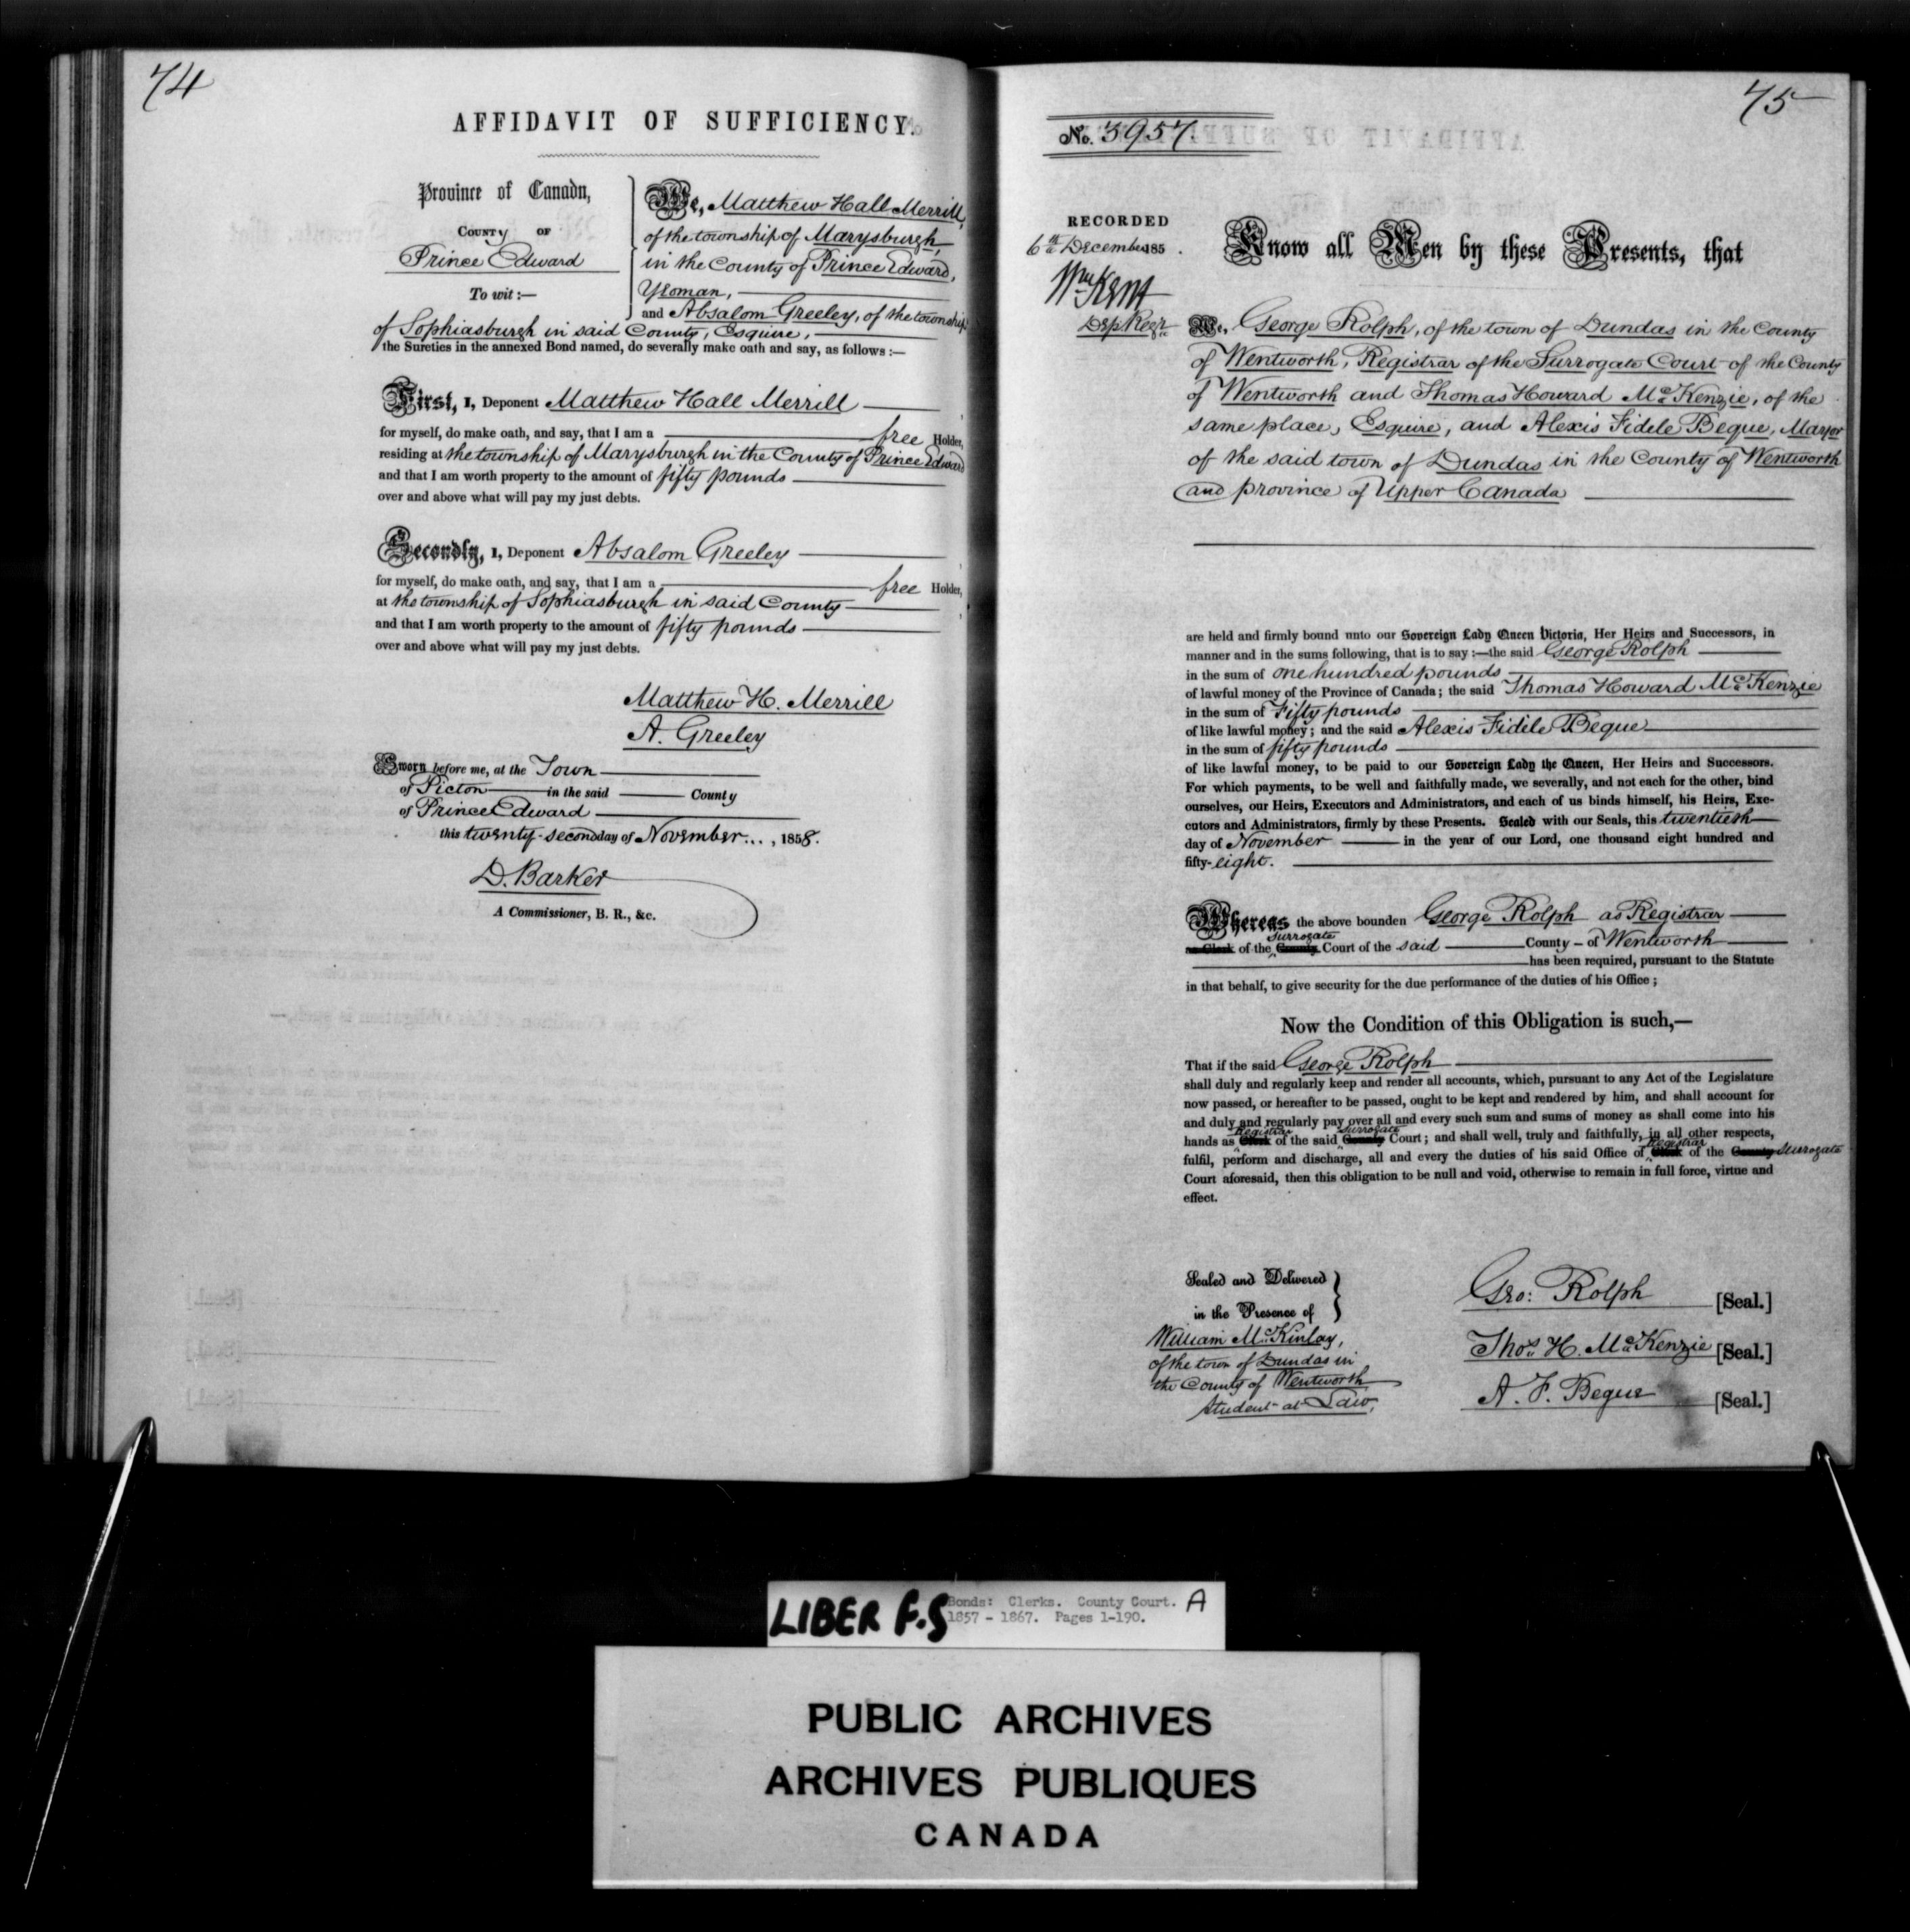 74
AFFIDAVIT OF SUFFICIENCY.
Province of Canada,
COUNTY OF
Prince Edward
To wit :—
We, Matthew Hall Merrill,
of the township of Marysburgh,
in the County of Prince Edward,
Yeoman,
and Absalom Greeley, of the township
of Sophiasburgh in said County, Esquire,
the Sureties in the annexed Bond named, do severally make oath and say, as follows :—
First, I, Deponent Matthew Hall Merrill
for myself, do make oath, and say, that I am a free Holder,
residing at the township of Marysburgh in the County of Prince Edward
and that I am worth property to the amount of fifty pounds
over and above what will pay my just debts.
Secondly, I, Deponent Absalom Greeley
for myself, do make oath, and say, that I am a free Holder,
at the township of Sophiasburgh in said County
and that I am worth property to the amount of fifty pounds
over and above what will pay my just debts.
Matthew H. Merrill
A. Greeley
Sworn before me, at the Town
of Picton in the said County
of Prince Edward
this twenty-second day of November..., 1858.
D. Barker
A Commissioner, B. R., &c.
75
No. 3957.
RECORDED
6th December 185 .
Wm Kent
Dep Regr
Know all Men by these Presents, that
We, George Rolph, of the town of Dundas in the County
of Wentworth, Registrar of the Surrogate Court of the County
of Wentworth and Thomas Howard McKenzie, of the
same place, Esquire, and Alexis Fidele Beque, Mayor
of the said town of Dundas in the County of Wentworth
and province of Upper Canada
are held and firmly bound unto our Sovereign Lady Queen Victoria, Her Heirs and Successors, in
manner and in the sums following, that is to say :—the said George Rolph
in the sum of one hundred pounds
of lawful money of the Province of Canada; the said Thomas Howard McKenzie
in the sum of Fifty pounds
of like lawful money; and the said Alexis Fidele Beque
in the sum of fifty pounds
of like lawful money, to be paid to our Sovereign Lady the Queen, Her Heirs and Successors.
For which payments, to be well and faithfully made, we severally, and not each for the other, bind
ourselves, our Heirs, Executors and Administrators, and each of us binds himself, his Heirs, Exe-
cutors and Administrators, firmly by these Presents. Sealed with our Seals, this twentieth
day of November in the year of our Lord, one thousand eight hundred and
fifty-eight.
Whereas the above bounden George Rolph as Registrar
as Clerk of the County Surrogate Court of the said County – of Wentworth
has been required, pursuant to the Statute
in that behalf, to give security for the due performance of the duties of his Office ;
Now the Condition of this Obligation is such,—
That if the said George Rolph
shall duly and regularly keep and render all accounts, which, pursuant to any Act of the Legislature
now passed, or hereafter to be passed, ought to be kept and rendered by him, and shall account for
and duly and regularly pay over all and every such sum and sums of money as shall come into his
hands as Clerk Registrar of the said County Surrogate Court; and shall well, truly and faithfully, in all other respects,
fulfil, perform and discharge, all and every the duties of his said Office of Clerk Registrar of the County Surrogate
Court aforesaid, then this obligation to be null and void, otherwise to remain in full force, virtue and
effect.
Sealed and Delivered
in the Presence of
William McKinlay,
of the town of Dundas in
the County of Wentworth
Student at Law,
Geo: Rolph [Seal.]
Thos H. McKenzie [Seal.]
A. F. Beque [Seal.]
LIBER F.S
Bonds: Clerks. County Court. A
1857 - 1867. Pages 1-190.
PUBLIC ARCHIVES
ARCHIVES PUBLIQUES
CANADA